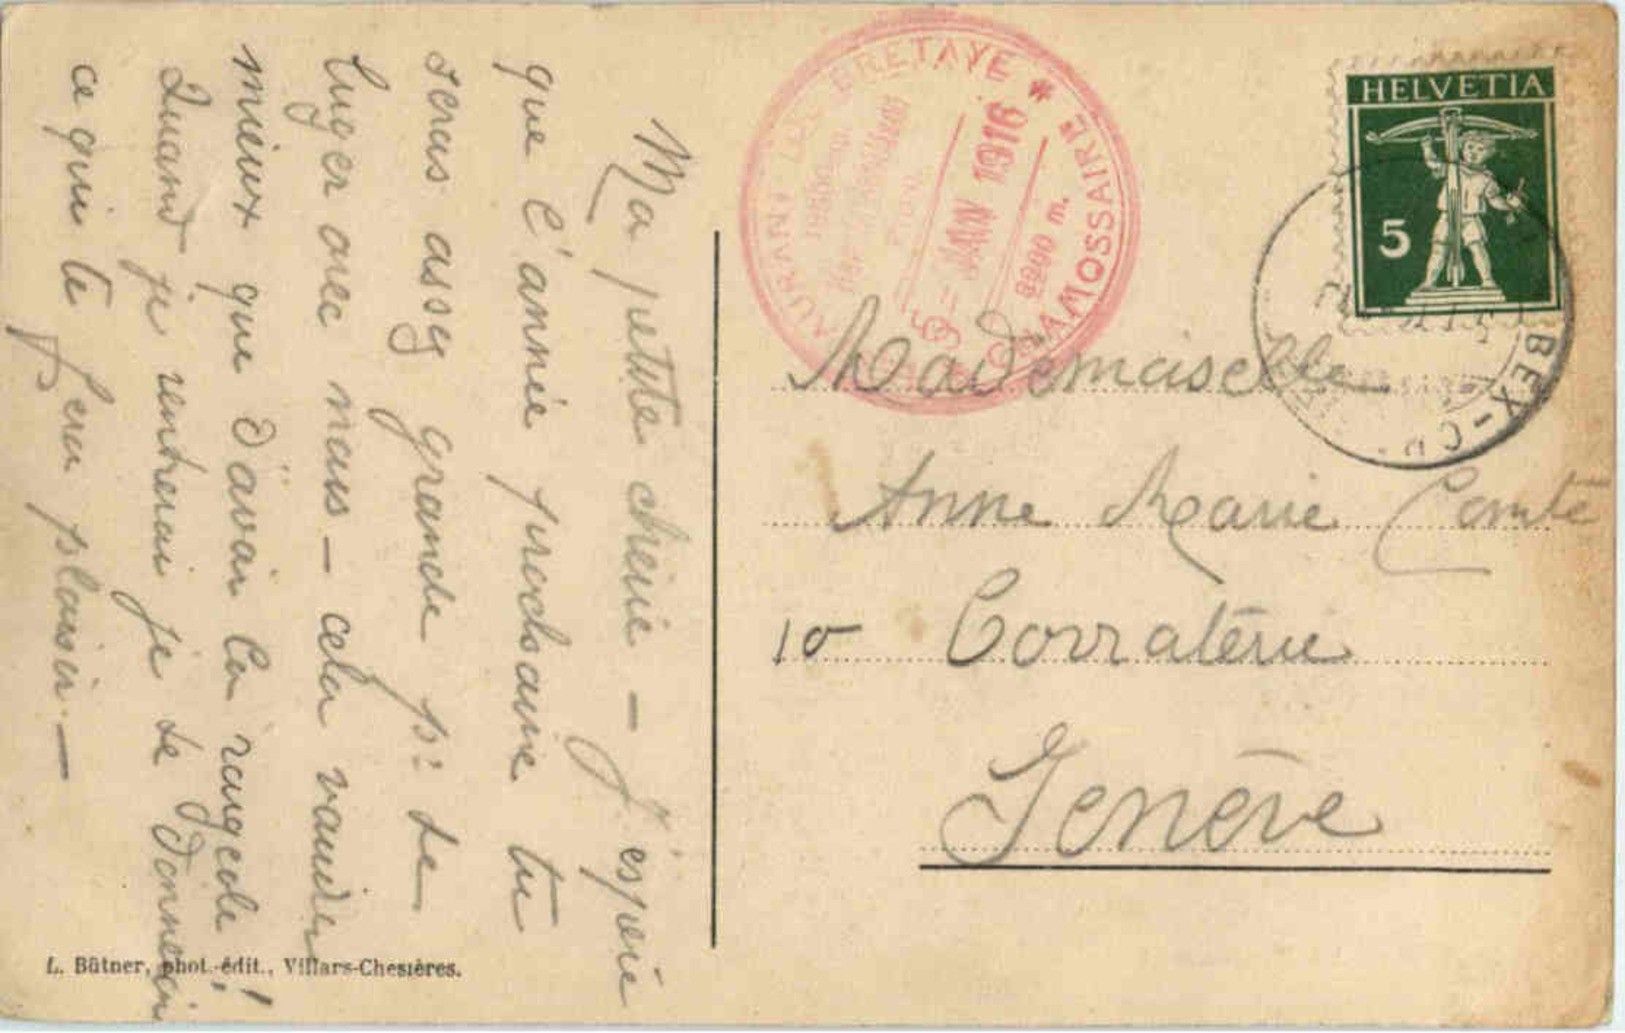 Ma petite chérie — J'espère
que l'année prochaine tu
seras assez grande pr. te
luger avec nous — cela vaudra
mieux que d'avoir la rougeole!!
Quand je rentrerai je te donnerai
ce qui te fera plaisir. —
L. Bütner, phot.-édit., Villars-Chesières.
BRETAYE * CHAMOSSAIRE
5 - JANV 1916
2200 m.
HELVETIA
5
BEX
Mademoiselle
Anne Marie Comte
10 Corraterie
Genève